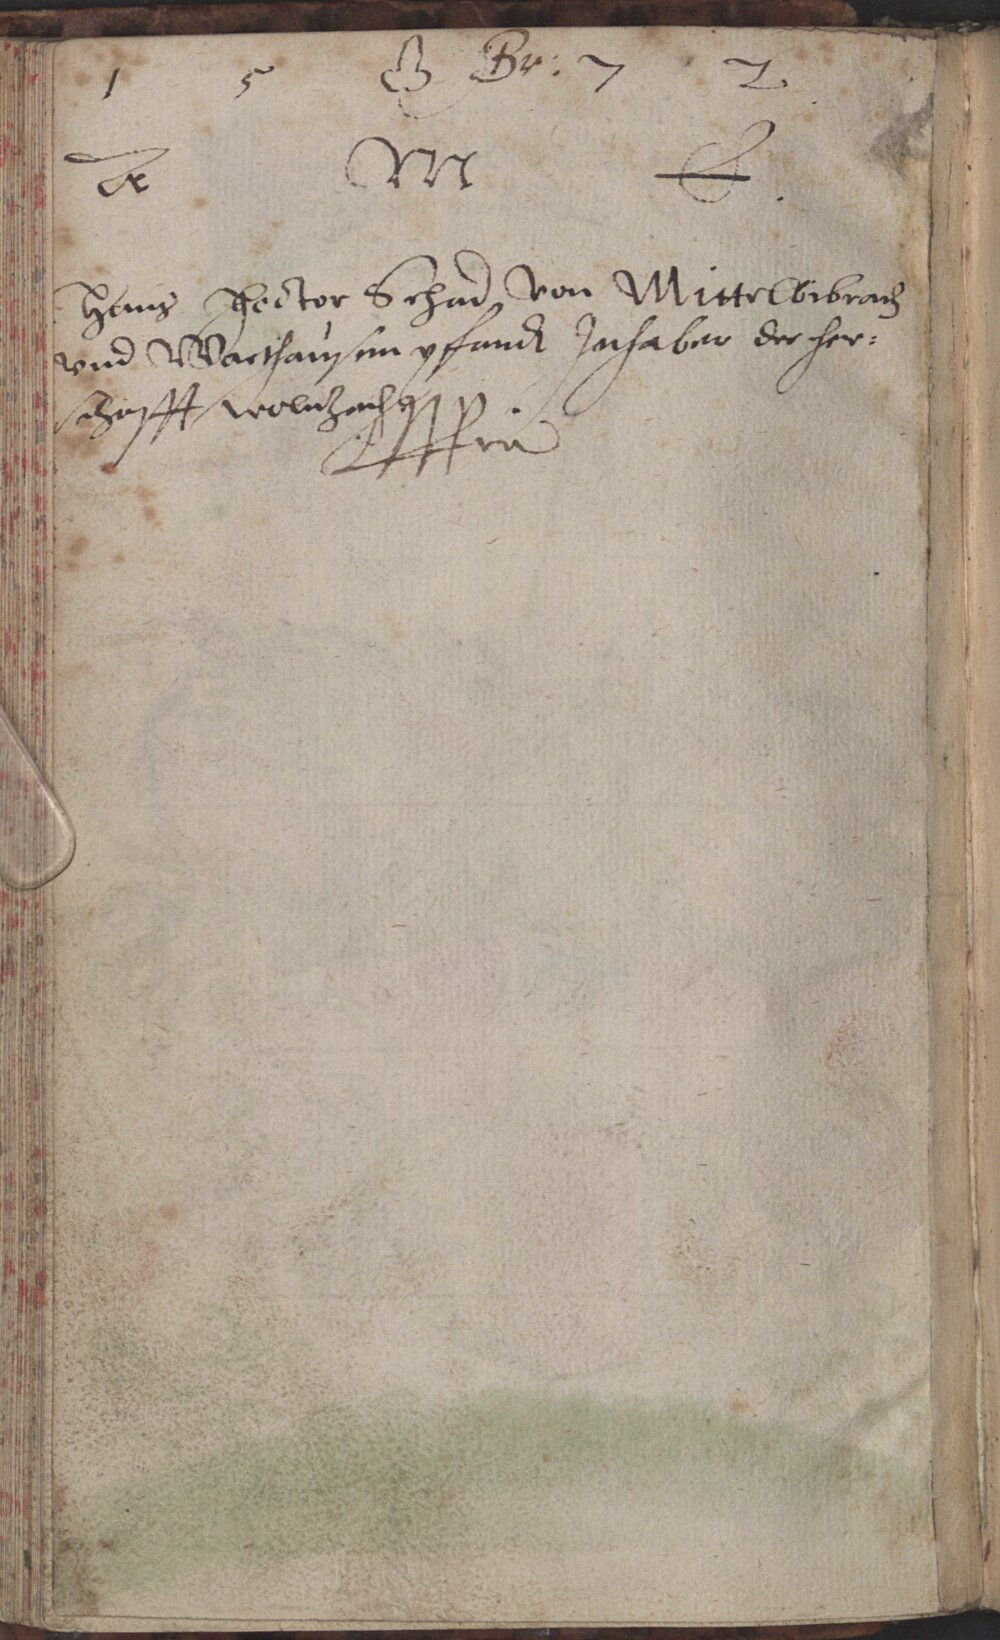 1 5 Br: 7 2
M
Hans Hector Schad von Mittelbibrach
vnd Warthausen pfandt Inhaber der her:
schafft wolnzach